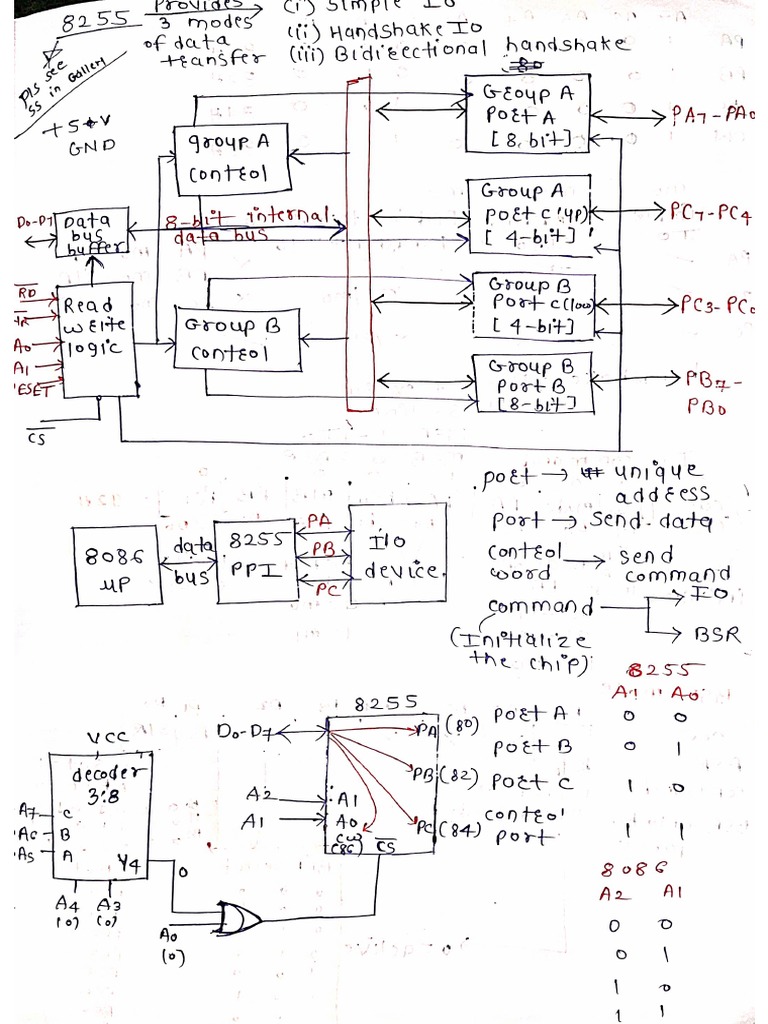 8255 Provides 3 modes of data transfer
(i) Simple IO
(ii) Handshake IO
(iii) Bidirectional handshake
Pls see
SS in Gallery
+5V
GND
group A
control
Group A
Port A
[8. bit]
PA7-PA0
D0-D7
Data
bus
buffer
8-bit internal
data bus
Group A
Port C (up)
[4-bit]
PC7-PC4
RD
WR
A0
A1
RESET
CS
Read
write
logic
Group B
control
Group B
Port C (low)
[4-bit]
PC3-PC0
Group B
Port B
[8-bit]
PB7-
PB0
8086
μP
data
bus
8255
PPI
PA
PB
PC
I/O
device
port → unique
address
port → send data
control
word → send
command
command → IO
BSR
(Initialize
the chip)
VCC
decoder
3:8
A7 C
A6 B
A5 A
Y4
0
A4
(0)
A3
(0)
A0
(0)
8255
D0-D7
A2
A1
A1
A0
CW
(86)
CS
PA (80)
PB (82)
PC (84)
8255
A1 A0
Port A 0 0
Port B 0 1
Port C 1 0
control
port 1 1
8086
A2 A1
0 0
0 1
1 0
1 1